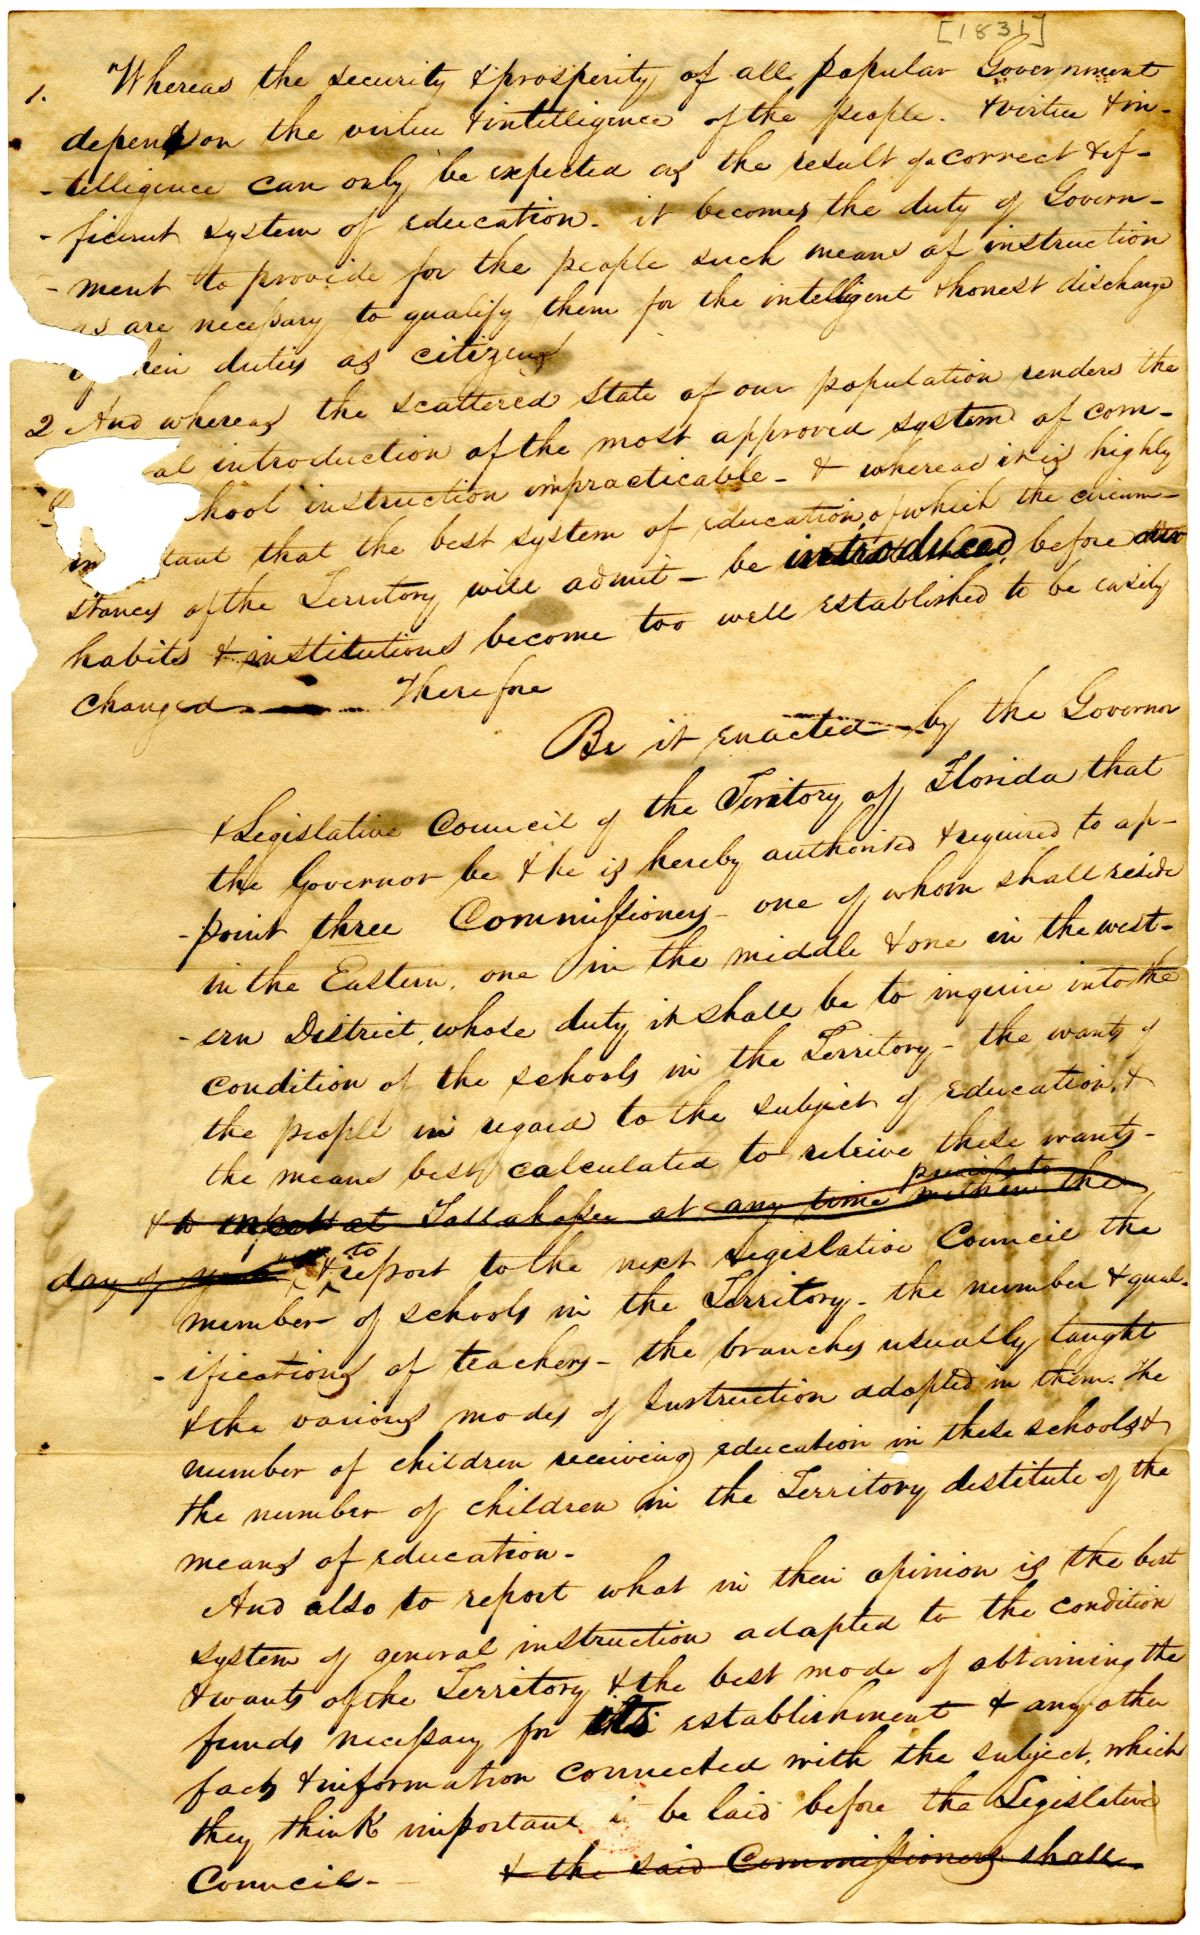 [1831]
1. Whereas the security & prosperity of all popular Government
depend on the virtue & intelligence of the people. & virtue & in-
-telligence can only be expected as the result of a correct & ef-
-ficient system of education - it becomes the duty of Govern-
-ment to provide for the people such means of instruction
as are necessary to qualify them for the intelligent & honest discharge
of their duties as citizens
2 And whereas the scattered state of our population renders the
al introduction of the most approved system of com-
hool instruction impracticable - & whereas it is highly
im tant that the best system of education of which the circum-
stances of the Territory will admit - be introduced before our
habits & institutions become too well established to be easily
changed - Therefore
Be it enacted by the Governor
& Legislative Council of the Territory of Florida that
the Governor be & he is hereby authorised & required to ap-
-point three Commissioners - one of whom shall reside
in the Eastern, one in the middle & one in the west-
-ern District, whose duty it shall be to inquire into the
condition of the schools in the Territory - the wants of
the people in regard to the subject of education, &
the means best calculated to relieve these wants -
& to at Tallahassee at any time previous to within the
day of & to report to the next Legislative Council the
number of schools in the Territory - the number & qual-
-ifications of teachers - the branches usually taught
& the various modes of Instruction adopted in them. The
number of children receiving education in these schools &
the number of children in the Territory destitute of the
means of education -
And also to report what in their opinion is the best
system of general instruction adapted to the condition
& wants of the Territory & the best mode of obtaining the
funds necessary for its establishment & any other
facts & information connected with the subject, which
they think important to be laid before the Legislative
Council - & the said Commissioners shall